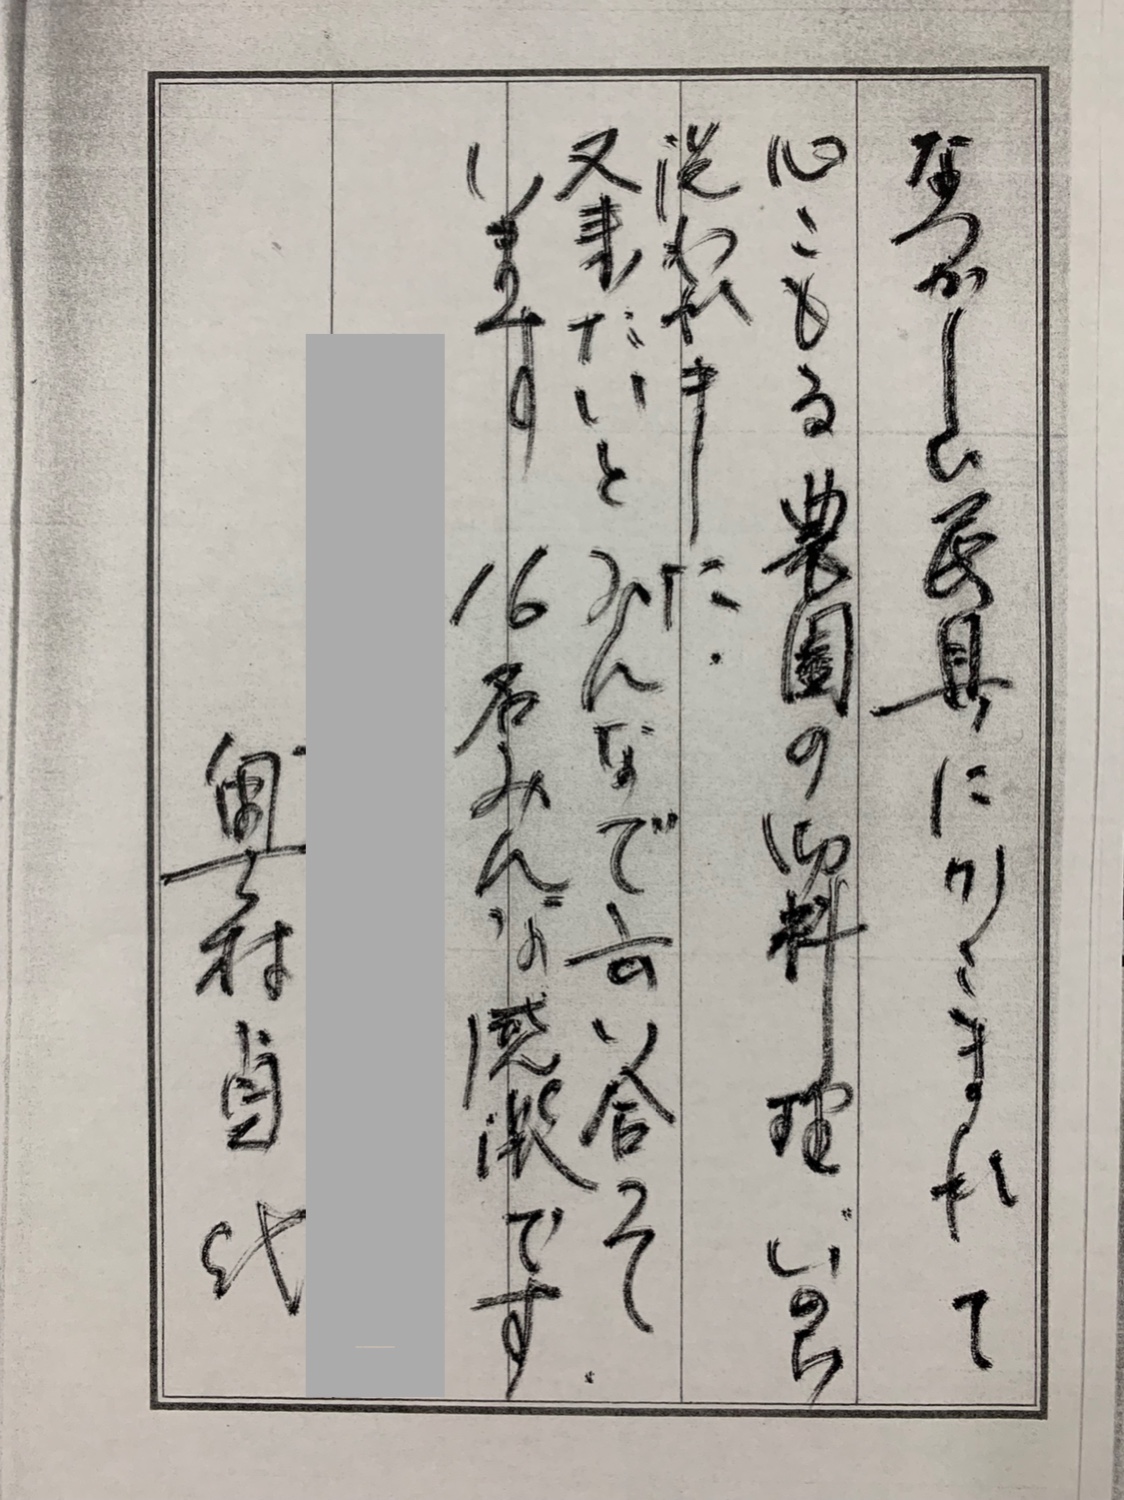 なつかしい民具にかこまれて
心こもる農園の御料理いのち
洗われましたに.
又来たいとみんなで言い合って.
います 16名みんな感激です
奥村貞代